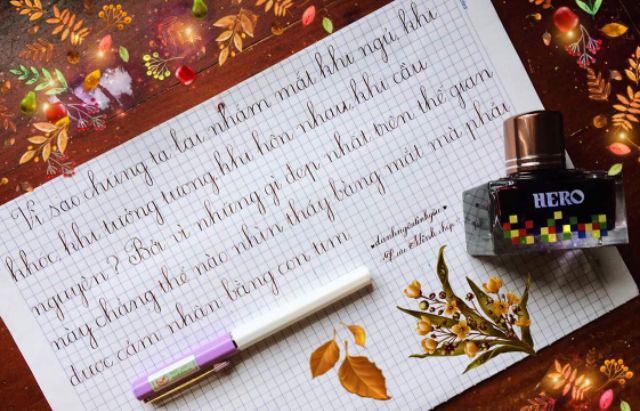 Vì sao chúng ta lại nhắm mắt khi ngủ, khi
khóc, khi tưởng tượng, khi hôn nhau, khi cầu
nguyện? Bởi vì những gì đẹp nhất trên thế gian
này chẳng thể nào nhìn thấy bằng mắt mà phải
được cảm nhận bằng con tim
Minh
HERO